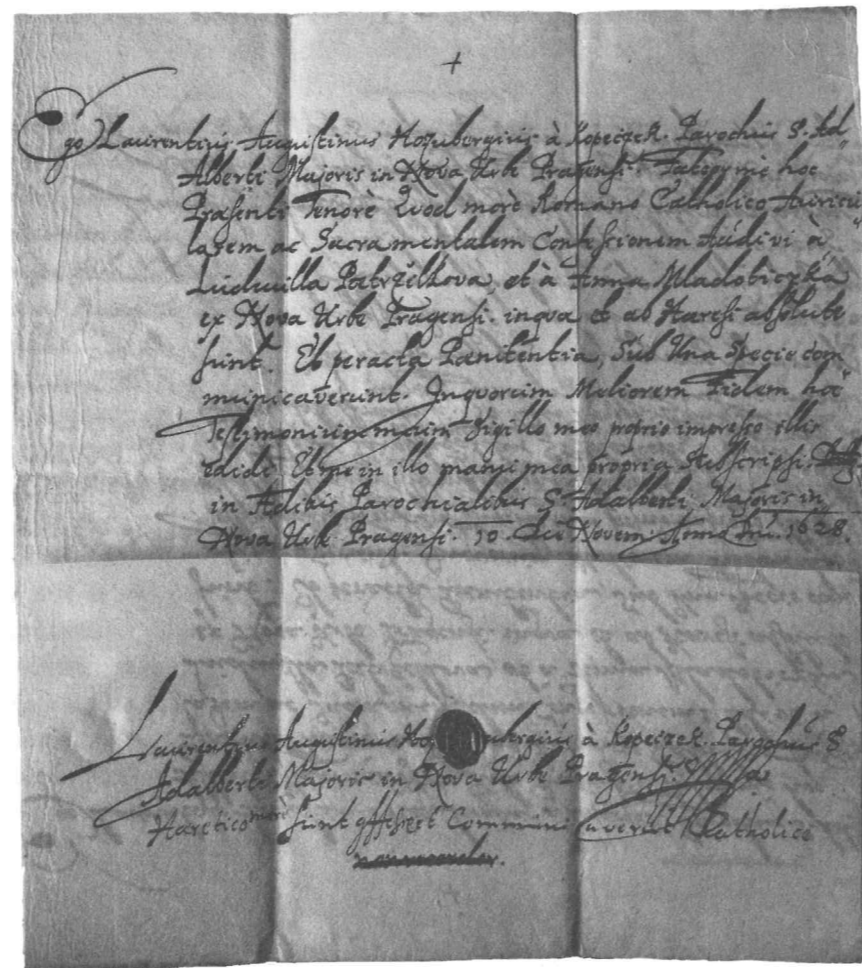 +
Ego Laurentius Augustinus Hozubergius à Kopeczek. Parochus S. Ad„
Alberti Majoris in Nova Urbe Pragensi. Fateor me hoc
Præsenti Tenorè Quod morè Romano Catholico Auricu„
larem ac Sacramentalem Confessionem Audivi à
Ludmilla Patrzilkova, et à Anna Mladoticzka
ex Nova Urbe Pragensi. in qua et ab Hæresi absolutæ
sunt. Et peracta Pænitentia, Sub Una Specie com
municaverunt. In quorum Meliorem Fidem hoc
Testimonium meum Sigillo meo proprio impresso illis
edidi. Et me in illo manu mea propria Subscripsi.
in Ædibus Parochialibus S. Adalberti Majoris in
Nova Urbe Pragensi. 10. Die Novem: Anno Dni. 1628.
Laurentius Augustinus Hozubergius à Kopeczek. Parochus S
Adalberti Majoris in Nova Urbe Pragensi.
Hæretico morè sunt Communicaverunt Catholico